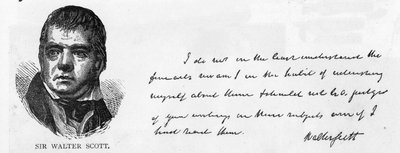 I do not in the least understand the
funerals nor am I in the habit of interesting
myself about them I should not be a judge
of your writings on these subjects even if I
had read them.
Walter Scott
SIR WALTER SCOTT.